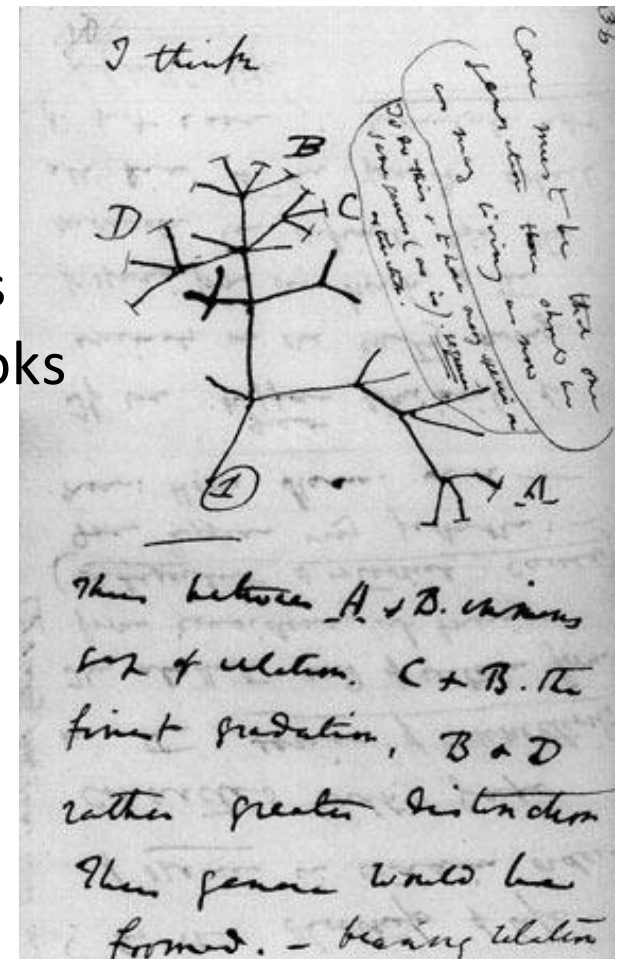 36
I think
Case must be that one
generation then should be
as many living as now
To do this & to have many species in
same genus (as is) requires
extinction.
B
C
D
s
oks
1
A
Thus between A & B. immens
gap of relation. C & B. the
finest gradation, B & D
rather greater distinction
Thus genera would be
formed. – bearing relation